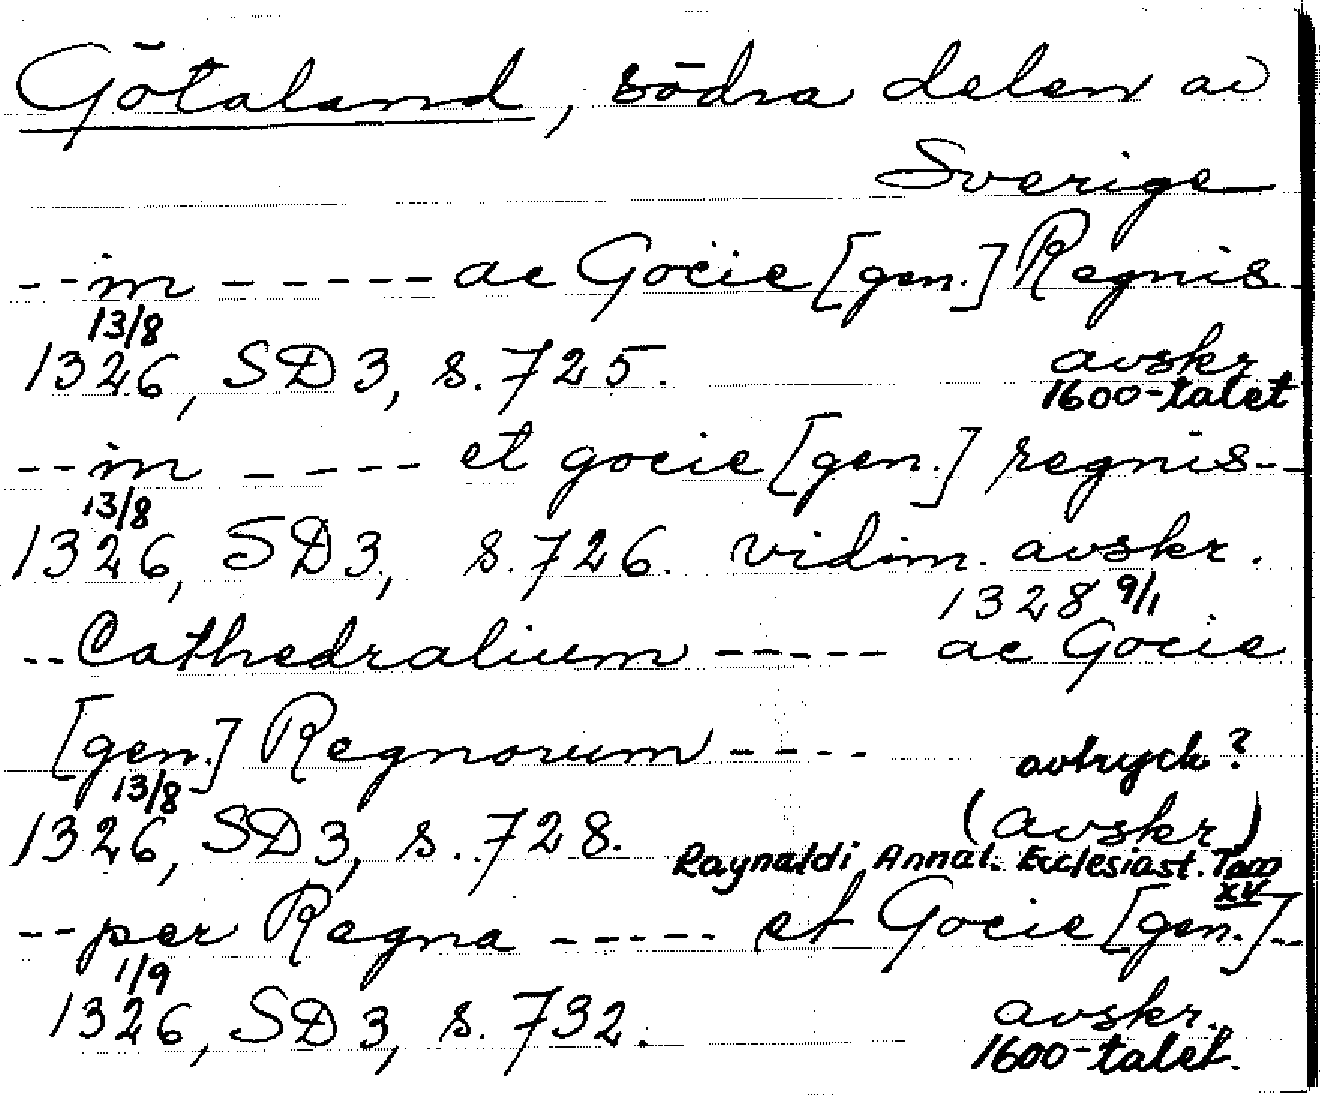 Götaland, södra delen av
Sverige
-- in - - - - - ac Gocie [gen.] Regnis -
13/8
1326, SD 3, s. 725. avskr
1600-talet
-- in - - - - et gocie [gen.] regnis --
13/8
1326, SD 3, s. 726. vidim. avskr.
1328 9/1
-- Cathedralium - - - - - ac Gocie
[gen.] Regnorum - - - - avtryck?
13/8
1326, SD 3, s. 728. (avskr)
Raynaldi Annal. Ecclesiast. Tom
XV
-- per Regna - - - - - et Gocie [gen.] --
1/9
1326, SD 3, s. 732. avskr.
1600-talet.